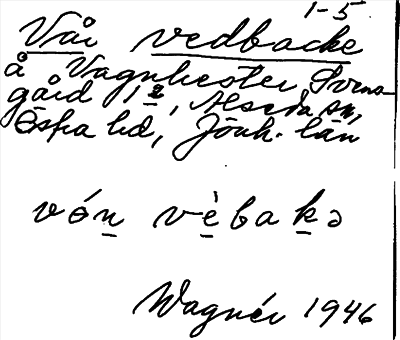 1-5
Vår vedbacke
å Vagnhester, Svens-
gård 1², Alseda sn,
Östra hd, Jönk. län
vón vèbakə
Wagnér 1946